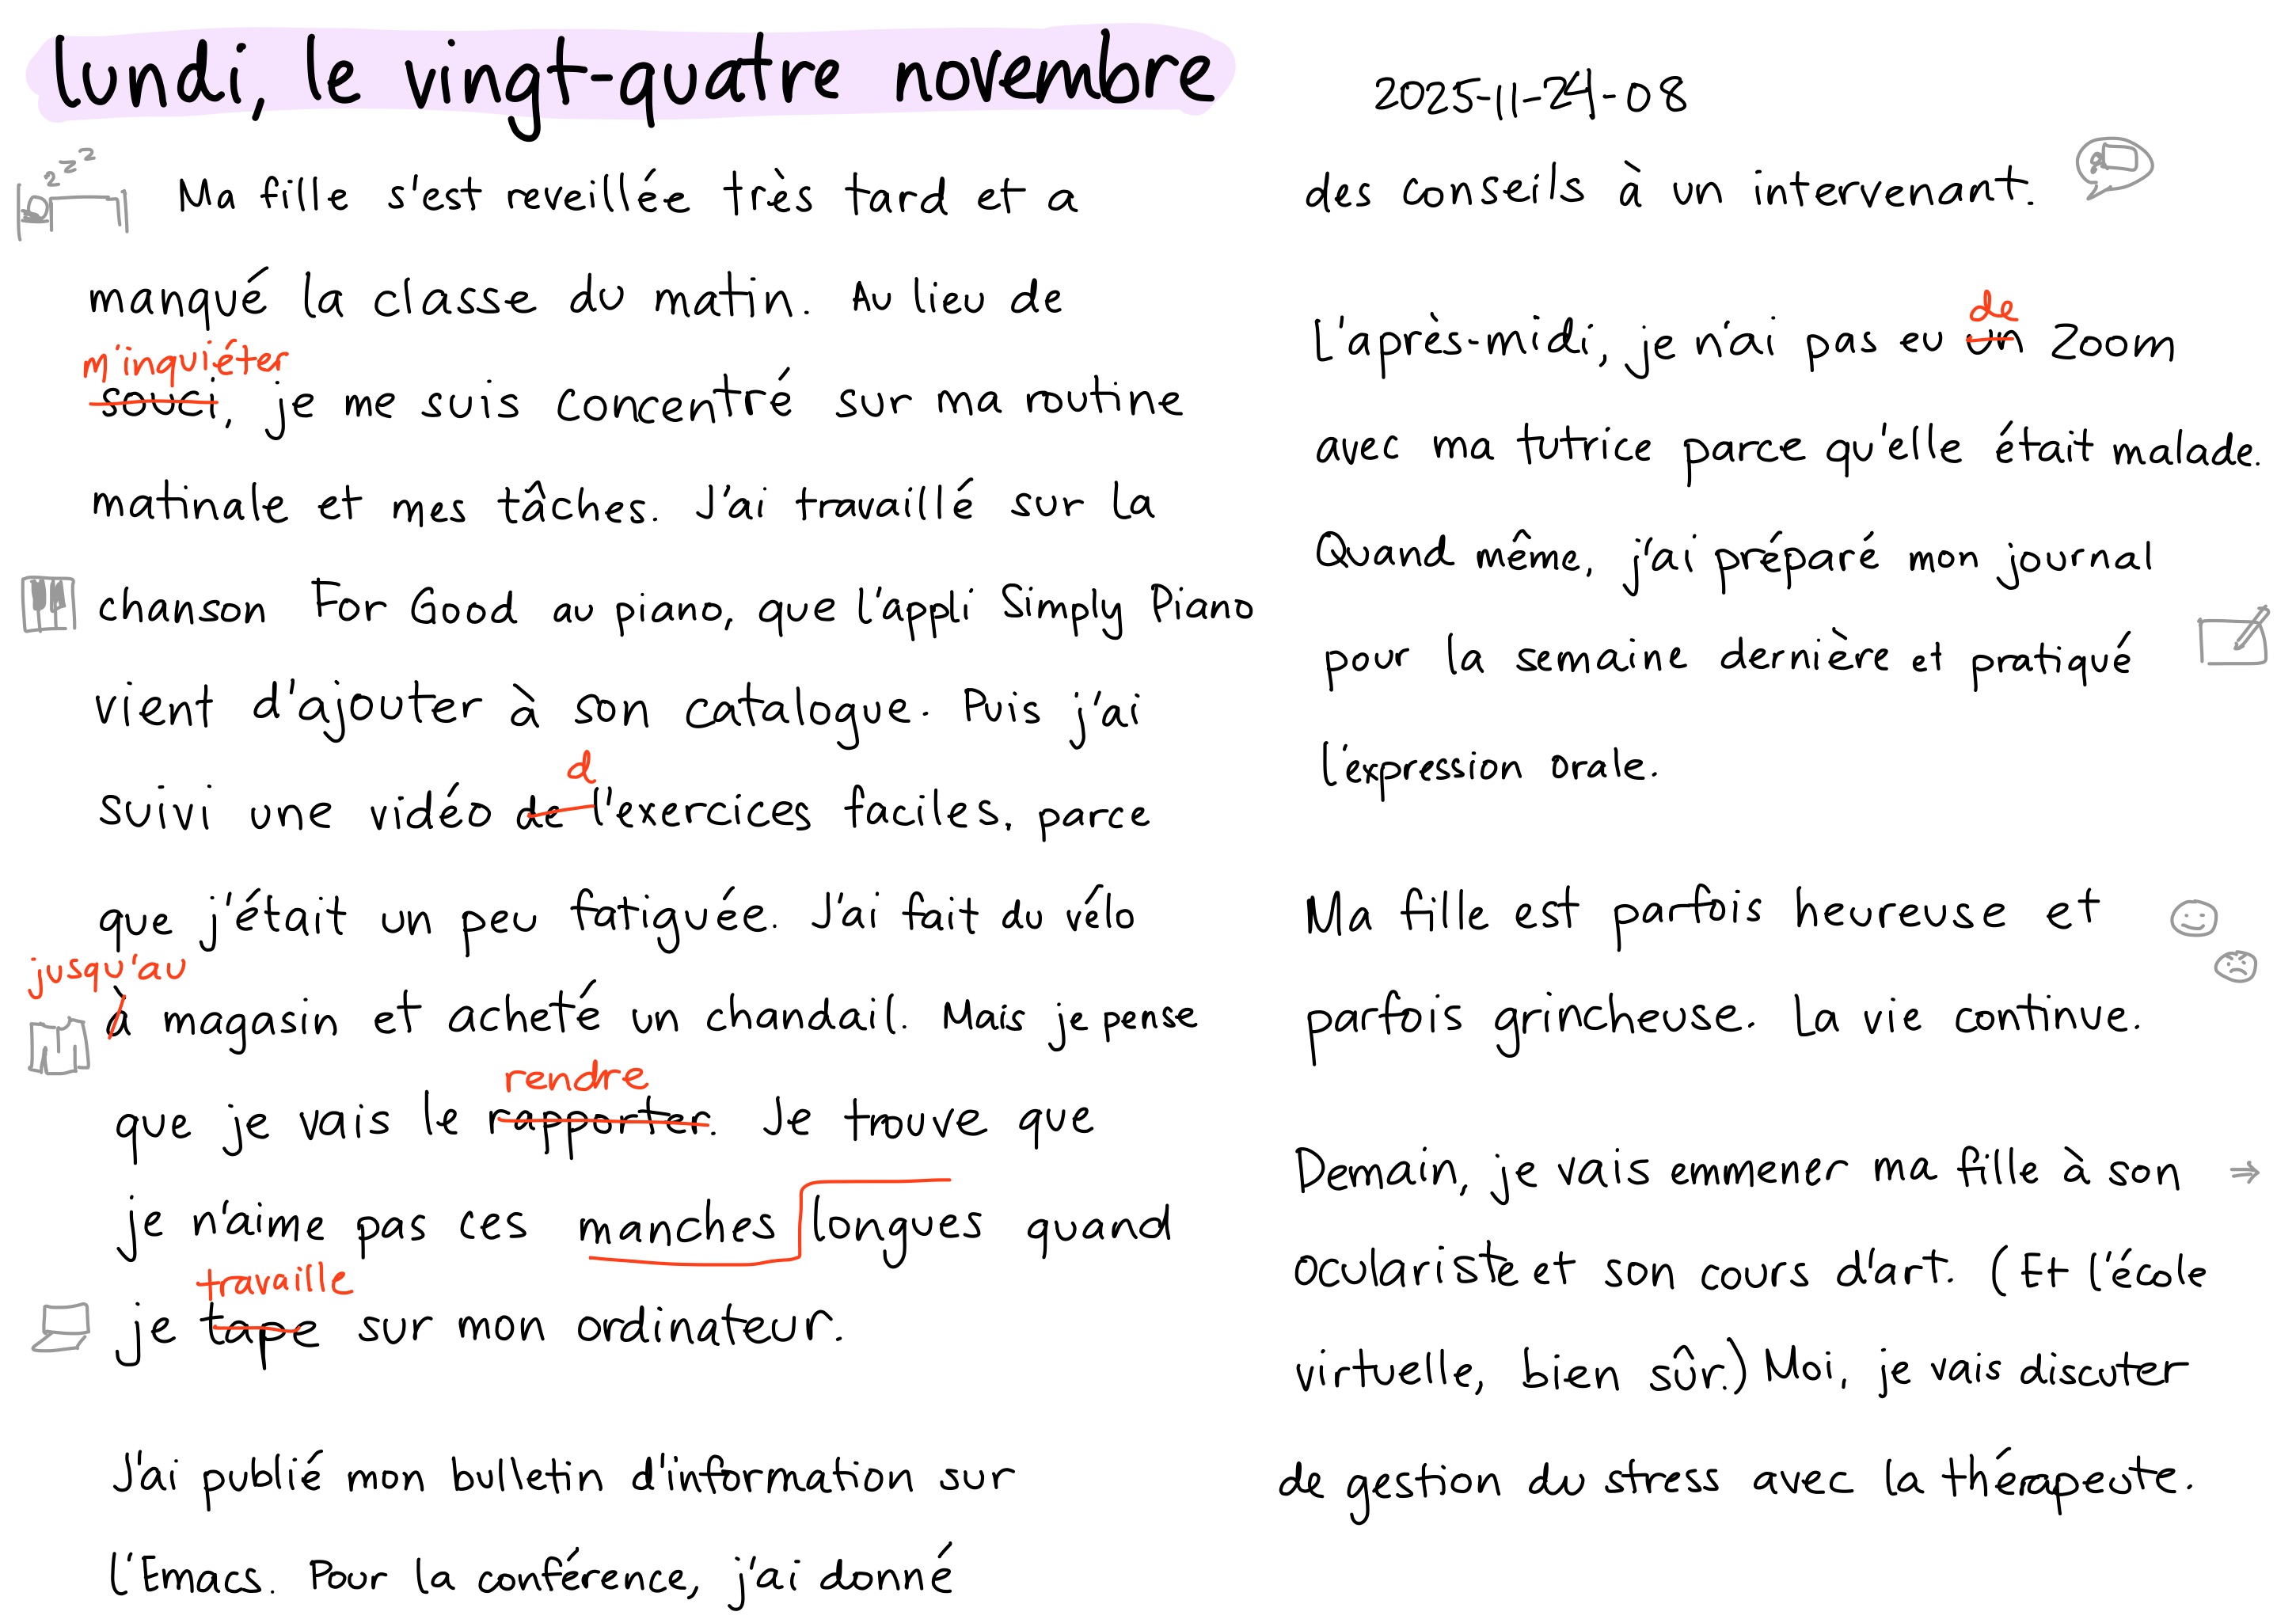 lundi, le vingt-quatre novembre
Ma fille s'est reveillée très tard et a
manqué la classe du matin. Au lieu de
m'inquiéter
souci, je me suis concentré sur ma routine
matinale et mes tâches. J'ai travaillé sur la
chanson For Good au piano, que l'appli Simply Piano
vient d'ajouter à son catalogue. Puis j'ai
d
suivi une vidéo de l'exercices faciles, parce
que j'était un peu fatiguée. J'ai fait du vélo
jusqu'au
à magasin et acheté un chandail. Mais je pense
rendre
que je vais le rapporter. Je trouve que
je n'aime pas ces manches longues quand
travaille
je tape sur mon ordinateur.
J'ai publié mon bulletin d'information sur
l'Emacs. Pour la conférence, j'ai donné
2025-11-24-08
des conseils à un intervenant.
de
L'après-midi, je n'ai pas eu un Zoom
avec ma tutrice parce qu'elle était malade.
Quand même, j'ai préparé mon journal
pour la semaine dernière et pratiqué
l'expression orale.
Ma fille est parfois heureuse et
parfois grincheuse. La vie continue.
Demain, je vais emmener ma fille à son
oculariste et son cours d'art. (Et l'école
virtuelle, bien sûr.) Moi, je vais discuter
de gestion du stress avec la thérapeute.